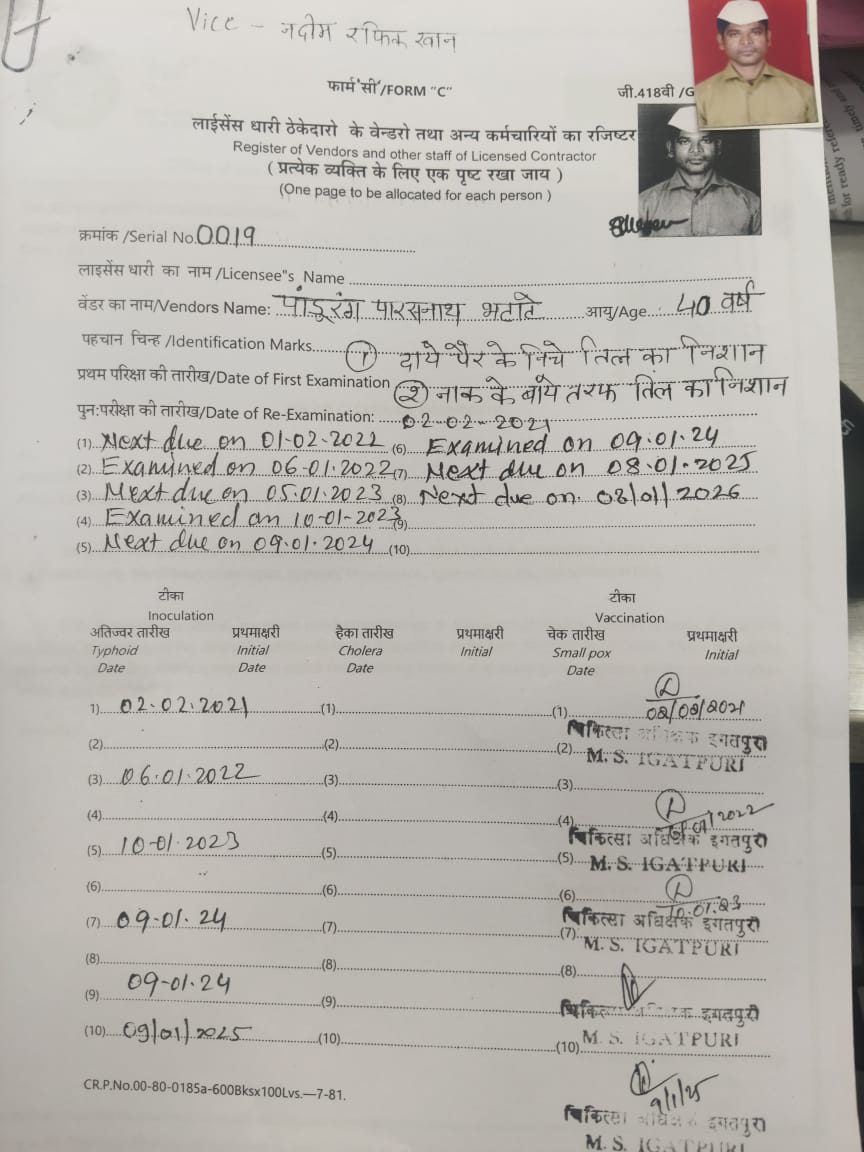 Vice - नदीम रफिक खान
फार्म 'सी'/FORM "C"
जी.418बी /G
लाईसेंस धारी ठेकेदारो के वेन्डरो तथा अन्य कर्मचारियों का रजिष्टर
Register of Vendors and other staff of Licensed Contractor
( प्रत्येक व्यक्ति के लिए एक पृष्ट रखा जाय )
(One page to be allocated for each person )
क्रमांक /Serial No. 0019
लाइसेंस धारी का नाम /Licensee"s Name
वेंडर का नाम/Vendors Name: पांडूरंग पारसनाथ भटाटे आयु/Age : 40 वर्ष
पहचान चिन्ह /Identification Marks. (1) दाये पैर के निचे तिल का निशान
प्रथम परिक्षा की तारीख/Date of First Examination (2) नाक के बाये तरफ तिल का निशान
पुन:परीक्षा की तारीख/Date of Re-Examination: 02-02-2021
(1) Next due on 01-02-2022 (6) Examined on 09.01.24
(2) Examined on 06-01.2022 (7) Next due on 08.01.2025
(3) Next due on 05.01.2023 (8) Next due on. 08/01/2026
(4) Examined on 10-01-2023 (9)
(5) Next due on 09.01.2024 (10)
टीका टीका
Inoculation Vaccination
अतिज्वर तारीख प्रथमाक्षरी हैका तारीख प्रथमाक्षरी चेक तारीख प्रथमाक्षरी
Typhoid Initial Cholera Initial Small pox Initial
Date Date Date Date
1) 02.02.2021 (1) (1) 02/02/2021
(2) (2) (2) चिकित्सा अधिक्षक इगतपुरी
M. S. IGATPURI
(3) 06.01.2022 (3) (3)
(4) (4) (4)
चिकित्सा अधिक्षक इगतपुरी
(5) 10-01.2023 (5) (5) M. S. IGATPURI
(6) (6) (6) 10.01.23
चिकित्सा अधिक्षक इगतपुरी
(7) 09-01.24 (7) (7) M. S. IGATPURI
(8) (8) (8)
(9) 09-01.24 (9)
चिकित्सा अधिक्षक इगतपुरी
(10) 09/01/2025 (10) (10) M. S. IGATPURI
9/1/25
CR.P.No.00-80-0185a-600Bksx100Lvs.—7-81.
चिकित्सा अधिक्षक इगतपुरी
M. S. IGATPURI